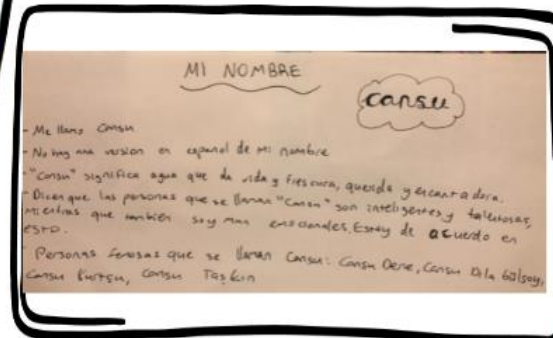 MI NOMBRE
cansu
- Me llamo Cansu
- No hay una version en español de mi nombre
- "Cansu" significa agua que da vida y frescura, querida y encantadora.
- Dicen que las personas que se llaman "Cansu" son inteligentes y talentosas,
mientras que también soy mas emocionales. Estoy de acuerdo en
esto.
- Personas famosas que se llaman Cansu: Cansu Dere, Cansu Dila Gülsoy,
Cansu Kurtsu, Cansu Taşkın